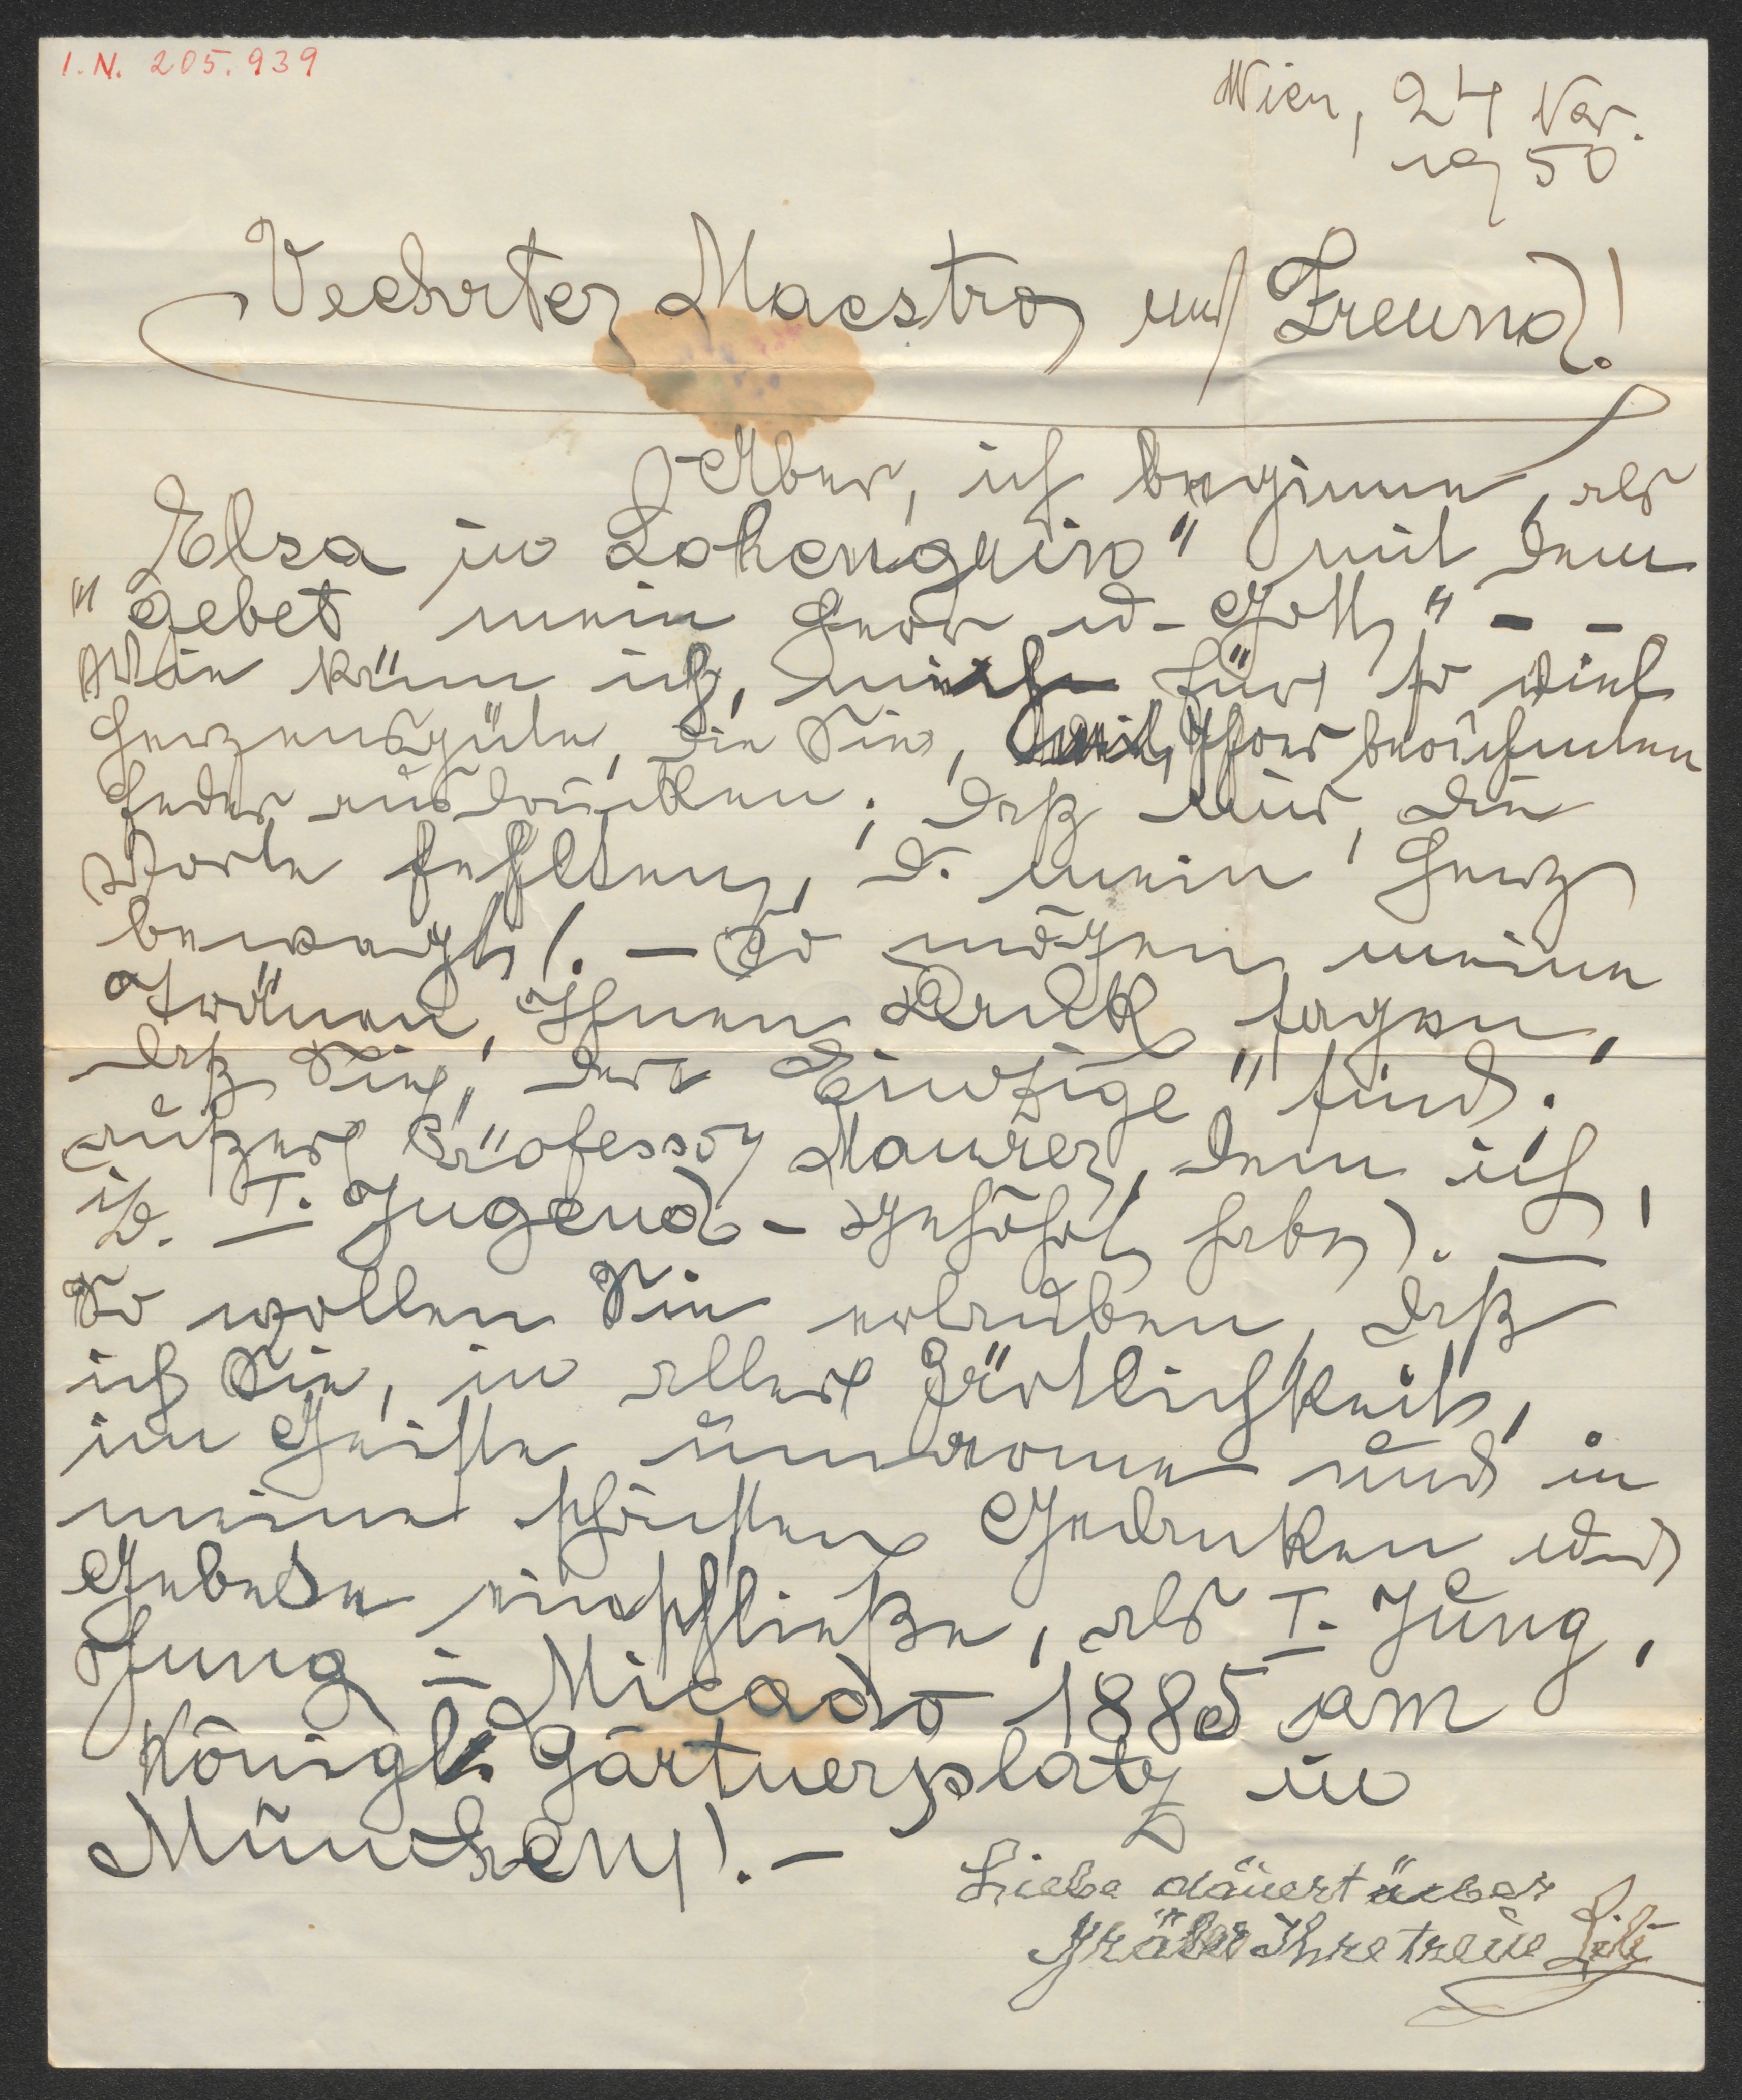 I.N. 205.939
Wien, 24 Nov.
1950
Veehrter Maestro und Freund!
Aber, ich beginne, als
Elsa in Lohengrin" mit dem
"Gebet mein Herr u. Gott" - -
Wie kann ich, für so viel
Herzensgüte, die Sie, mit Ihrer berühmten
Feder ausdrücken; daß mir, die
Worte fehlten, u. mein Herz
bewegt! - So mögen meine
Tränen, Ihnen Dank sagen,
daß Sie, der "Einzige" sind.
außer Professor Maurer, dem ich,
I. Jugend - gehört habe). -
So wollen Sie erlauben, daß
ich Sie, in aller Zärtlichkeit,
im Geiste umarme und in
meine schönsten Gedanken und
Gebete einschließe, als I. Jung,
Jung - Micado 1885 am
Königl. Gärtnerplatz in
München! -
Liebe dauert über
Gräber Ihre treue Lili